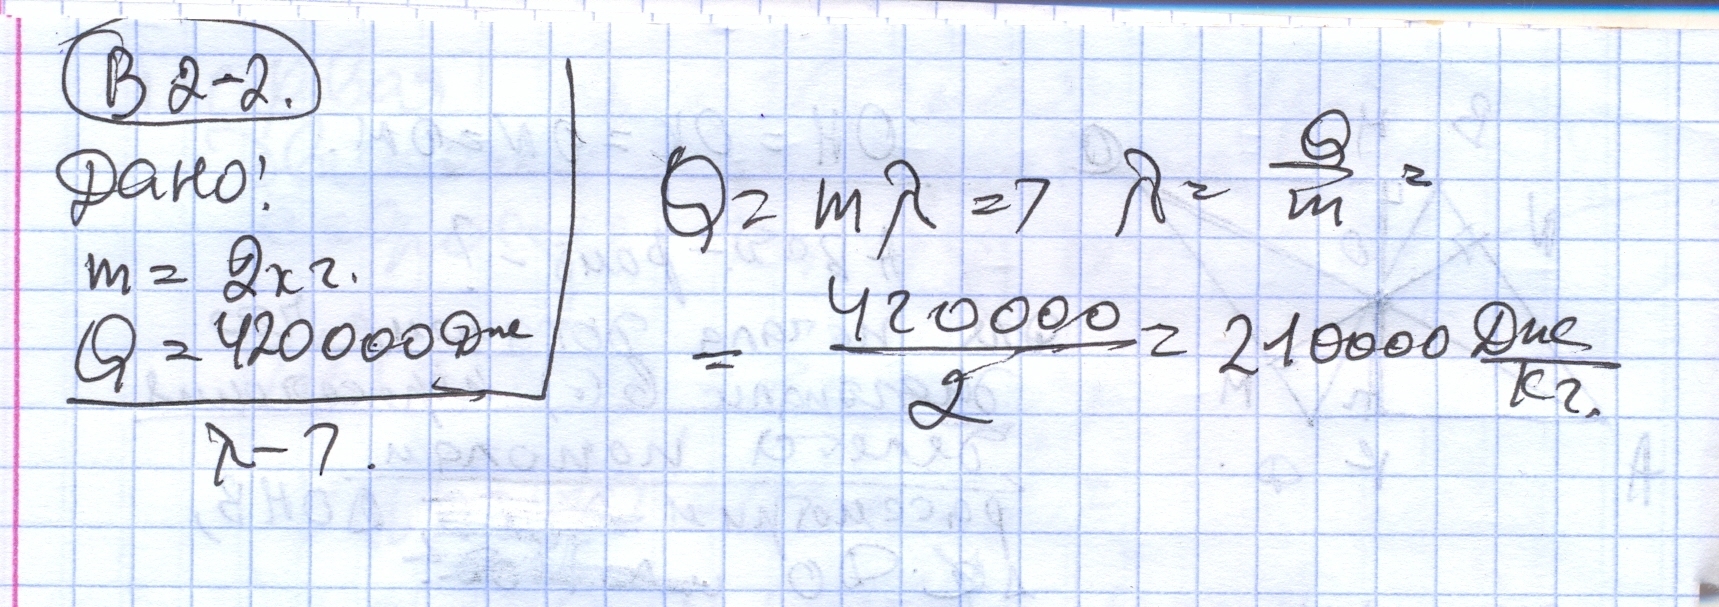 В 2-2.
Дано:
m = 2кг.
Q = 420000 Дж
λ - ?.
Q = mλ => λ = Q/m =
= 420000/2 = 210000 Дж/кг.